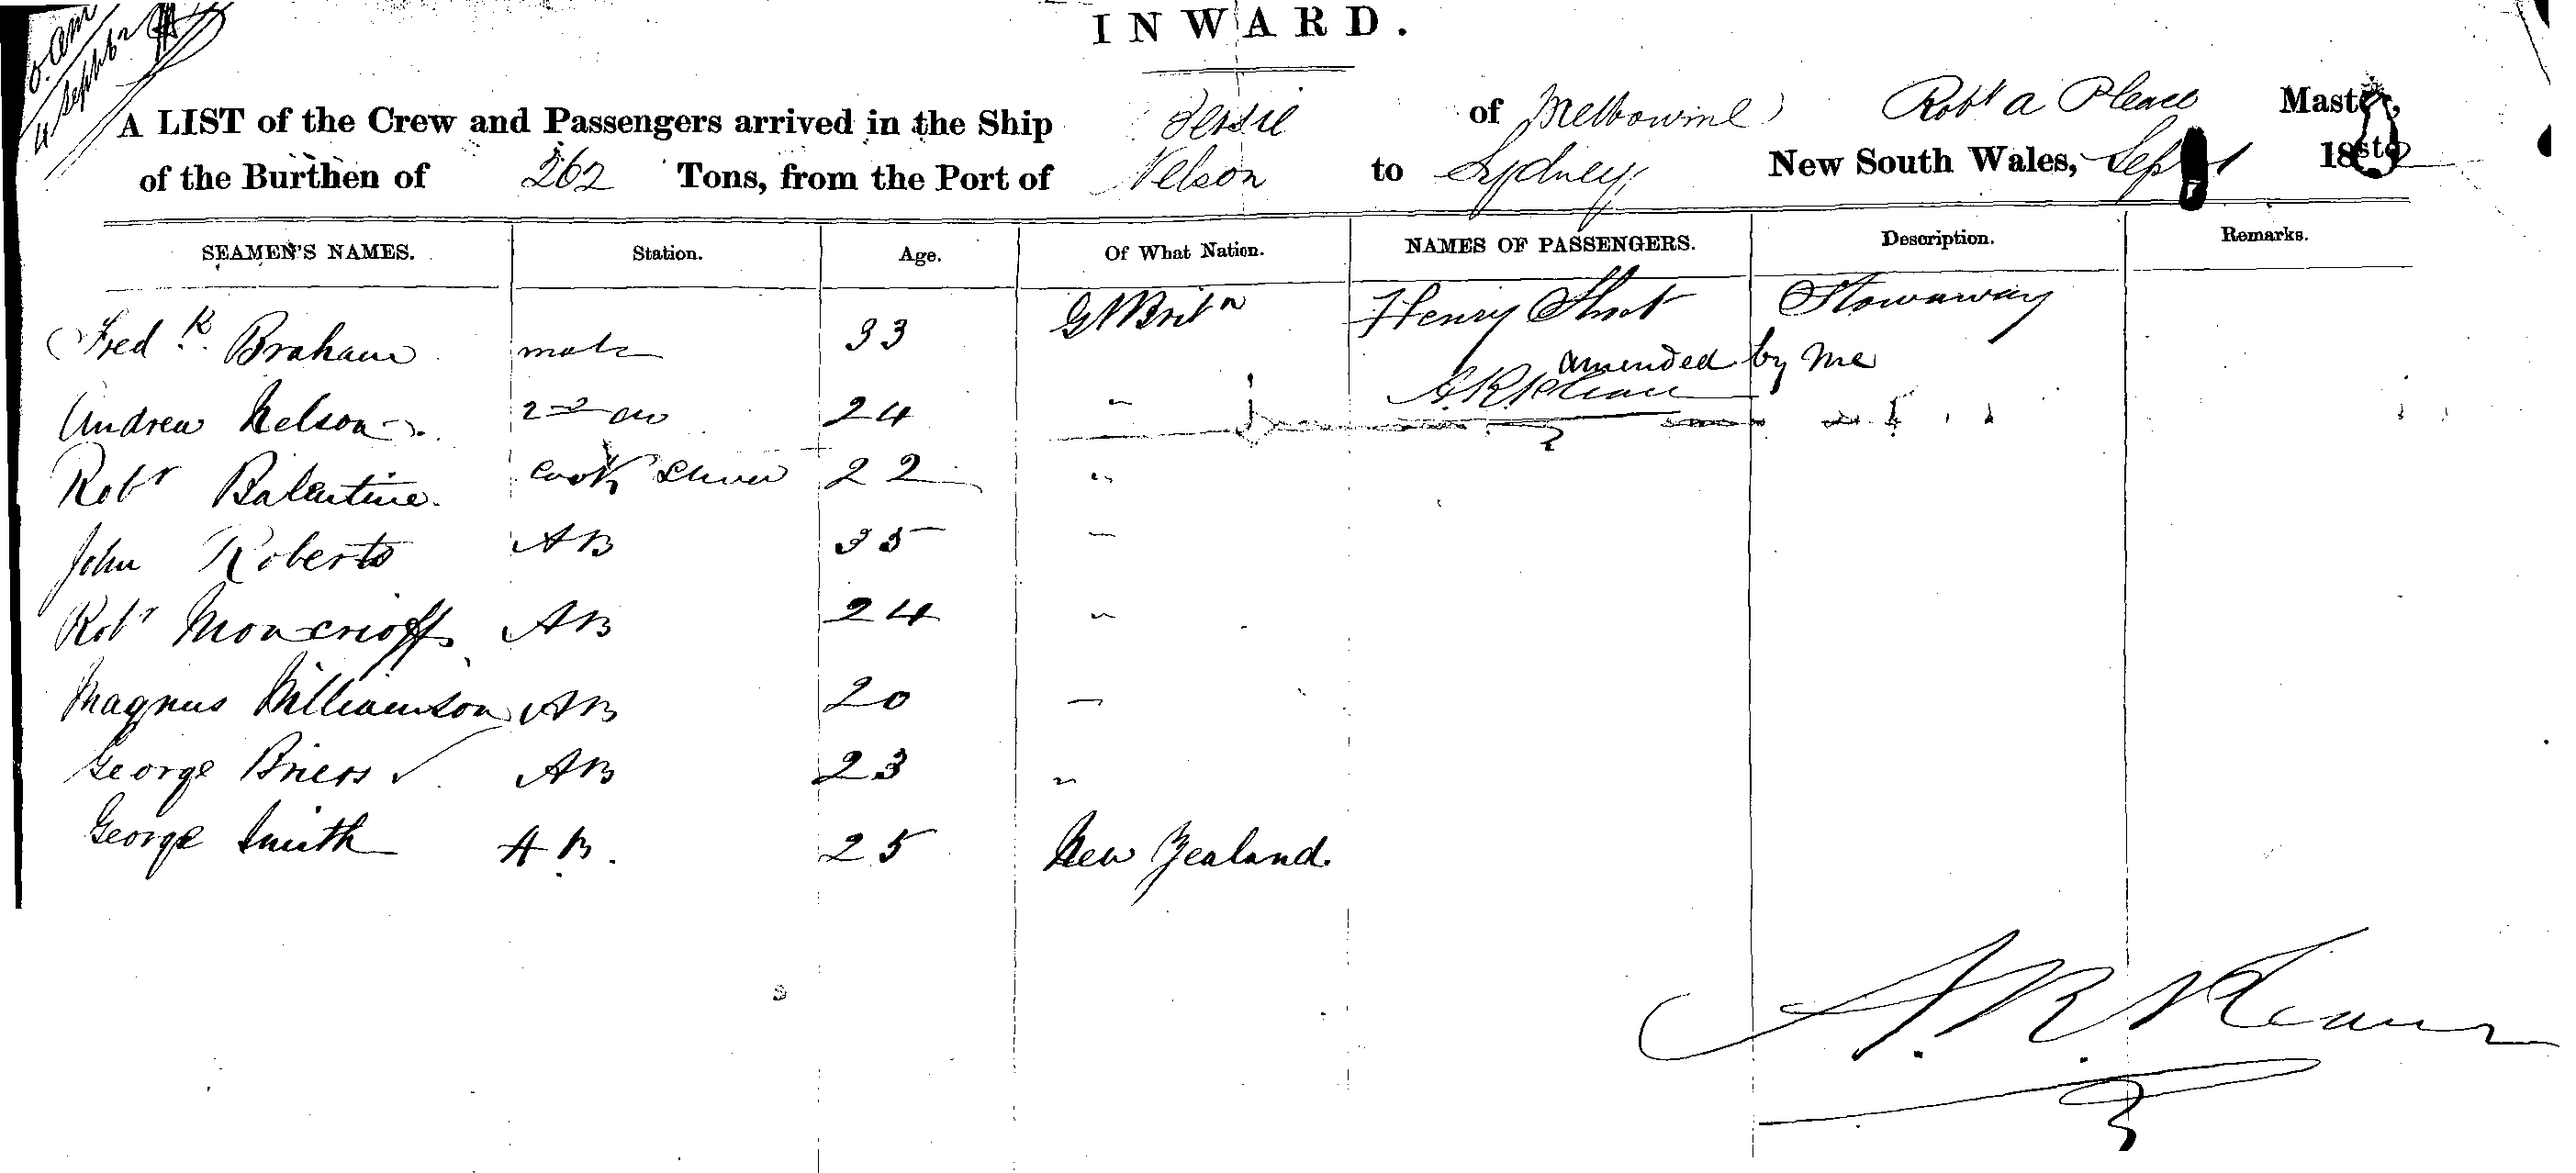 INWARD.
A LIST of the Crew and Passengers arrived in the Ship Bessie of Melbourne Robt A Pleace Master,
of the Burthen of 262 Tons, from the Port of Nelson to Sydney New South Wales, Sep 1 18
SEAMEN'S NAMES. Station. Age. Of What Nation. NAMES OF PASSENGERS. Description. Remarks.
Fredk. Braham mate 33 Gt Britn Henry Short Stowaway
amended by me
Andrew Nelson 2nd do 24 "
Robt Balentine. Cook 22 "
John Roberts AB 35 "
Robt Moncrieff AB 24 "
Magnus Williamson AB 20 "
George Briers AB 23 "
George Smith AB. 25 New Zealand.